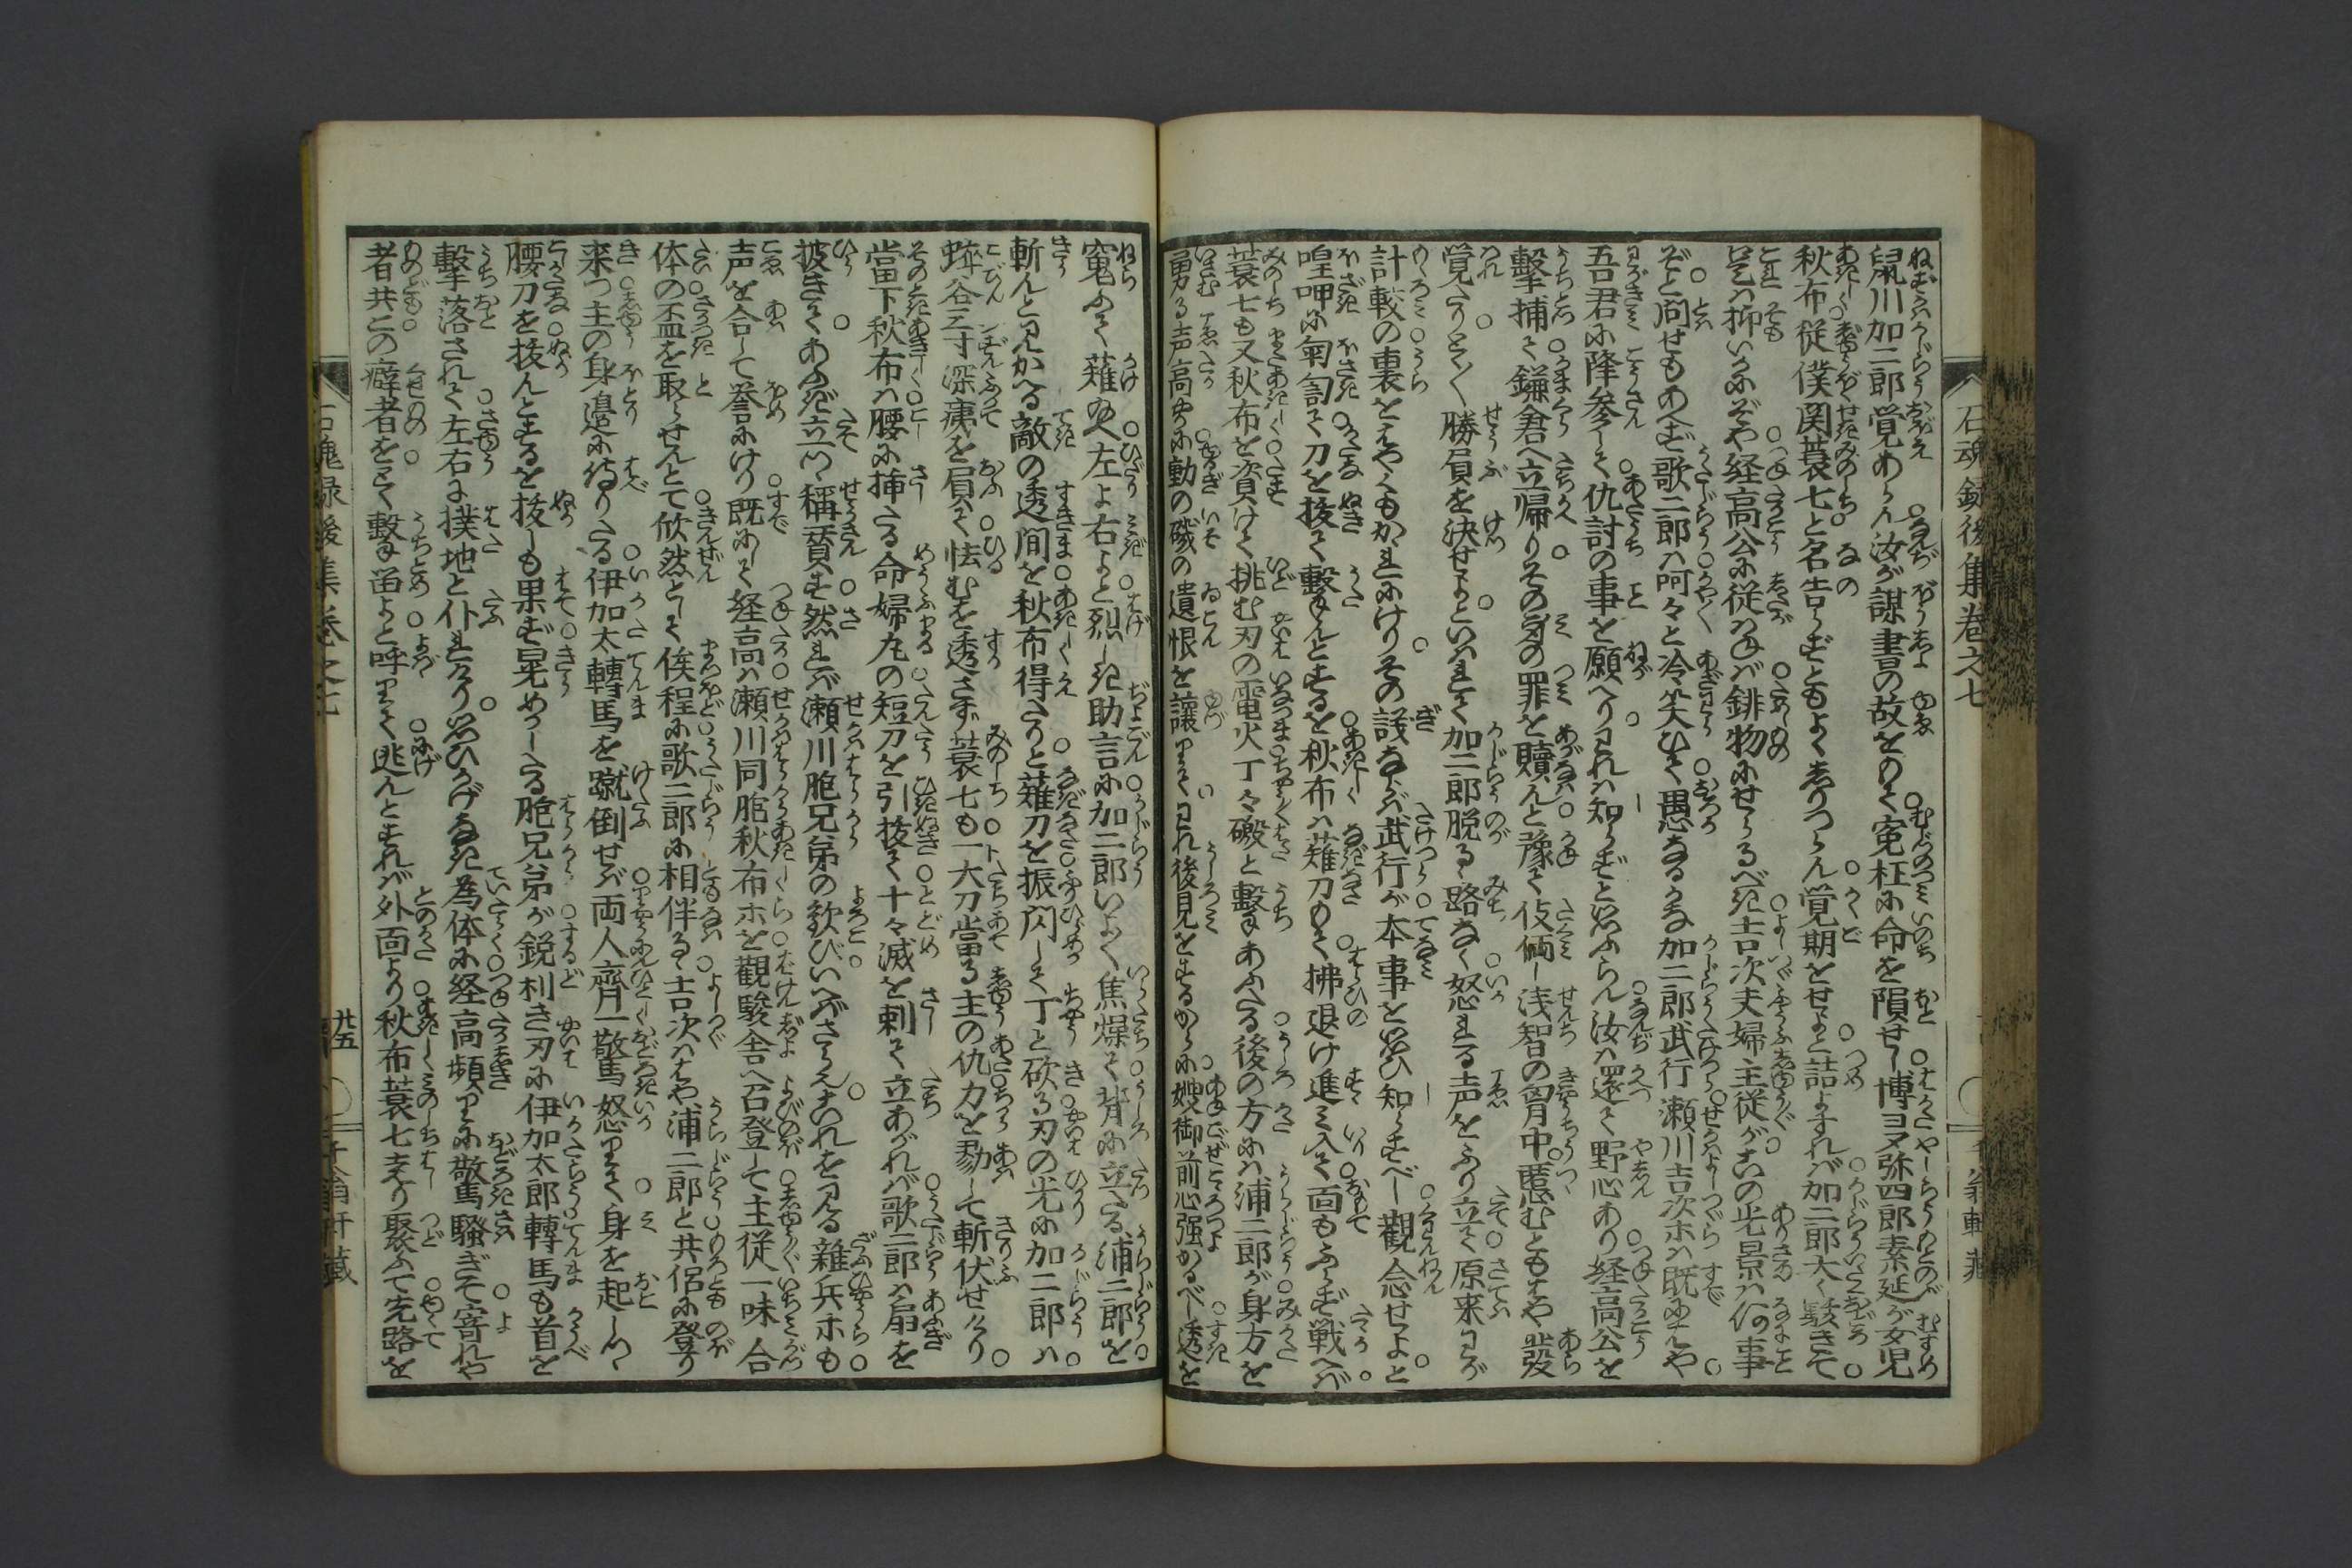 石魂録後集巻之七
鼠川加二郎覚あらん汝が謀書の故をもて寃枉に命を隕せし博多弥四郎素延が女児
秋布従僕関蓑七と名告らずともよくしりつらん覚期をせよと詰よすれば加二郎大く駭きて
是は抑いかにぞや経高公に従はねば鉄物にせらるべき吉次夫婦主従がこの光景は何事
ぞと問せもあへず歌二郎は呵々と冷笑ひて愚なるかな加二郎武行瀬川吉次ホは既にはや
吾君に降参して仇討の事を願へりわれは知らずと思ふらん汝は還て野心あり経高公を
撃捕て鎌倉へ立帰りその身の罪を贖んと豫て伎倆し浅智の匈中慝むともはや発
覚たりとく〳〵勝屓を決せよといはれて加二郎脱るゝ路なく怒れる声をふり立て原来わが
計較の裏をはやくもかかれにけりその議ならば武行が本事を思ひ知らすべし觀念せよと
喤呷に匍匐て刀を抜て撃んとするを秋布は薙刀もて拂退け進み入て面もふらず戦へば
蓑七も又秋布を資けて挑む刃の電火丁々礑と撃あふたる後の方には浦二郎が身方を
勇る声高やかに動の礒の遺恨を譲りてわれ後見をするからに嫂御前心強かるべし透を
窺ふて薙又左よ右よと烈しき助言に加二郎いよ〳〵焦燥て背に立たる浦二郎を
斬んと見かへる敵の透間を秋布得たりと薙刀を振閃して丁と砍る刃の光に加二郎は
蟀谷三寸深痍を屓て怯むを透さず蓑七も一大刀當る主の仇力を勠して斬伏せけり
當下秋布は腰に挿たる命婦丸の短刀を引抜て十々滅を刺て立あがれば歌二郎は扇を
披きてあふぎ立つゝ稱賛す然れば瀬川胞兄弟の歓びいへばさらんこれを見る雑兵ホも
声を合して誉にけり既にして経高は瀬川同胞秋布ホを觀駿舎へ召登して主従一味合
体の盃を取らせんとて忻然として俟程に歌二郎に相伴るゝ吉次はや浦二郎と共侶に登り
来つ主の身邉に侍りたる伊加太轉馬を蹴倒せば両人齊一驚怒りて身を起しつゝ
腰刀を抜んとするを抜しも果ず晃めかしたる胞兄弟が鋭利き刃に伊加太郎轉馬も首を
撃落されて左右に撲地と仆れけり思ひがけなき為体に経高頻りに驚騒ぎて寄れや
者共この癖者をとく撃畄よと呼りて逃んとすれば外面より秋布蓑七走り聚ふて先路を
石魂録後集巻之七
廿五